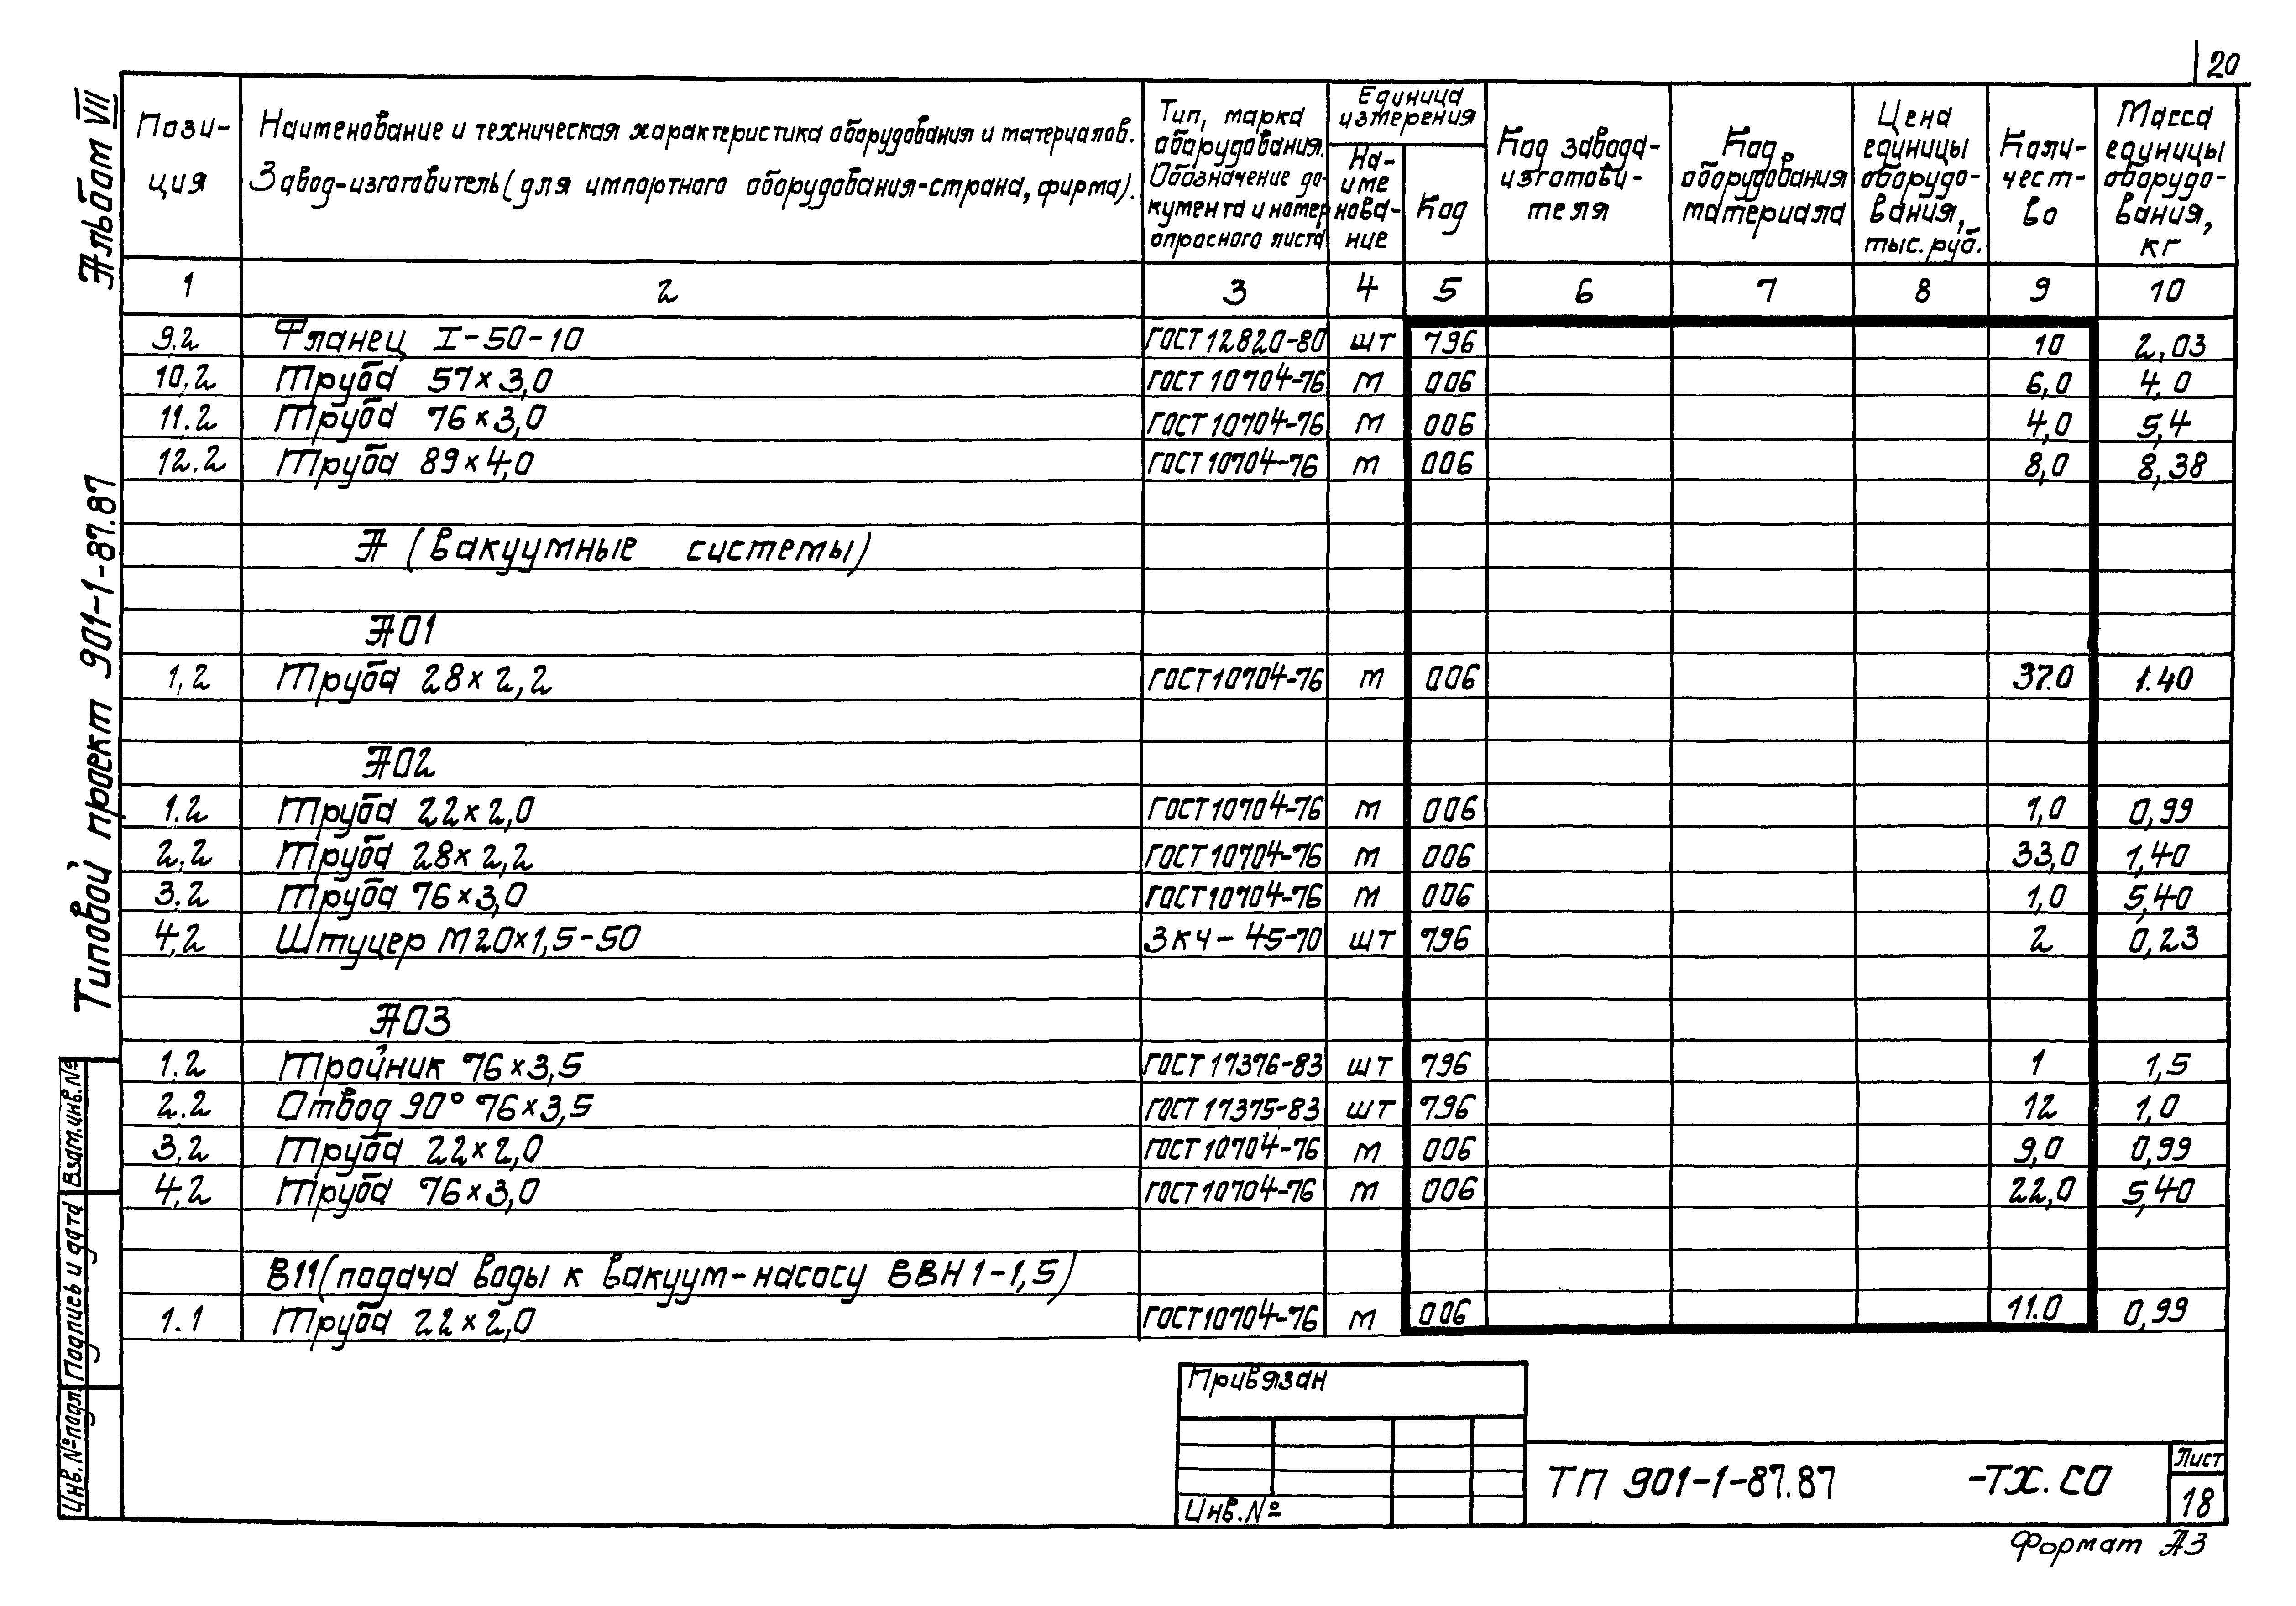 20
Альбом VII
Типовой проект 901-1-87.87
Взам.инв.№
Подпись и дата
Инв.№подл.
Пози-
ция
Наименование и техническая характеристика оборудования и материалов.
Завод-изготовитель (для импортного оборудования-страна, фирма).
Тип, марка
оборудования.
Обозначение до-
кумента и номер
опросного листа
Единица
измерения
На-
име
нова-
ние
Код
Код завода-
изготови-
теля
Код
оборудования
материала
Цена
единицы
оборудо-
вания,
тыс.руб.
Коли-
чест-
во
Масса
единицы
оборудо-
вания,
кг
1 2 3 4 5 6 7 8 9 10
9.2 Фланец I-50-10 ГОСТ 12820-80 шт 796 10 2,03
10.2 Труба 57×3,0 ГОСТ 10704-76 м 006 6,0 4,0
11.2 Труба 76×3,0 ГОСТ 10704-76 м 006 4,0 5,4
12.2 Труба 89×4,0 ГОСТ 10704-76 м 006 8,0 8,38
А (вакуумные системы)
А01
1,2 Труба 28×2,2 ГОСТ 10704-76 м 006 37.0 1.40
А02
1.2 Труба 22×2,0 ГОСТ 10704-76 м 006 1,0 0,99
2.2 Труба 28×2,2 ГОСТ 10704-76 м 006 33,0 1,40
3.2 Труба 76×3,0 ГОСТ 10704-76 м 006 1,0 5,40
4.2 Штуцер М20×1,5-50 3КЧ-45-70 шт 796 2 0,23
А03
1.2 Тройник 76×3,5 ГОСТ 17376-83 шт 796 1 1,5
2.2 Отвод 90° 76×3,5 ГОСТ 17375-83 шт 796 12 1,0
3.2 Труба 22×2,0 ГОСТ 10704-76 м 006 9,0 0,99
4.2 Труба 76×3,0 ГОСТ 10704-76 м 006 22,0 5,40
В11 (подача воды к вакуум-насосу ВВН1-1,5)
1.1 Труба 22×2,0 ГОСТ 10704-76 м 006 11.0 0,99
Привязан
Инв.№
ТП 901-1-87.87 -ТХ.СО
Лист
18
Формат А3